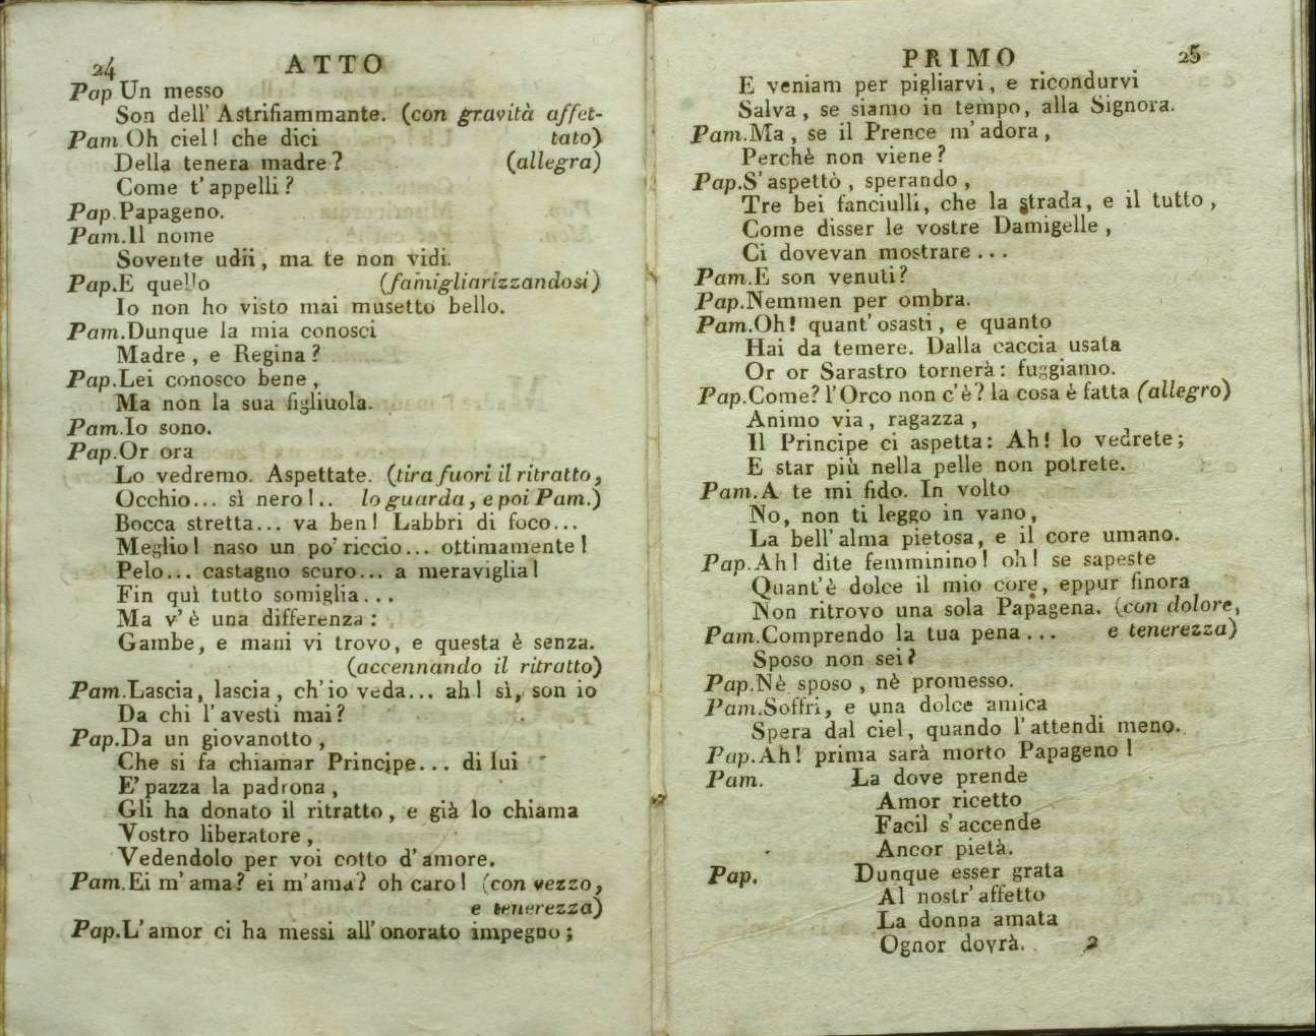 24 ATTO
Pap Un messo
Son dell' Astrifiammante. (con gravità affet-
Pam Oh ciel! che dici tato)
Della tenera madre? (allegra)
Come t'appelli?
Pap. Papageno.
Pam. Il nome
Sovente udii, ma te non vidi.
Pap. E quello (famigliarizzandosi)
Io non ho visto mai musetto bello.
Pam. Dunque la mia conosci
Madre, e Regina?
Pap. Lei conosco bene,
Ma non la sua figliuola.
Pam. Io sono.
Pap. Or ora
Lo vedremo. Aspettate. (tira fuori il ritratto,
Occhio... sì nero!.. lo guarda, e poi Pam.)
Bocca stretta... va ben! Labbri di foco...
Meglio! naso un po' riccio... ottimamente!
Pelo... castagno scuro... a meraviglia!
Fin quì tutto somiglia...
Ma v'è una differenza:
Gambe, e mani vi trovo, e questa è senza.
(accennando il ritratto)
Pam. Lascia, lascia, ch'io veda... ah! sì, son io
Da chi l'avesti mai?
Pap. Da un giovanotto,
Che si fa chiamar Principe... di lui
E' pazza la padrona,
Gli ha donato il ritratto, e già lo chiama
Vostro liberatore,
Vedendolo per voi cotto d'amore.
Pam. Ei m'ama? ei m'ama? oh caro! (con vezzo,
e tenerezza)
Pap. L'amor ci ha messi all'onorato impegno;
PRIMO 25
E veniam per pigliarvi, e ricondurvi
Salva, se siamo in tempo, alla Signora.
Pam. Ma, se il Prence m'adora,
Perchè non viene?
Pap. S'aspettò, sperando,
Tre bei fanciulli, che la strada, e il tutto,
Come disser le vostre Damigelle,
Ci dovevan mostrare...
Pam. E son venuti?
Pap. Nemmen per ombra.
Pam. Oh! quant'osasti, e quanto
Hai da temere. Dalla caccia usata
Or or Sarastro tornerà: fuggiamo.
Pap. Come? l'Orco non c'è? la cosa è fatta (allegro)
Animo via, ragazza,
Il Principe ci aspetta: Ah! lo vedrete;
E star più nella pelle non potrete.
Pam. A te mi fido. In volto
No, non ti leggo in vano,
La bell'alma pietosa, e il core umano.
Pap. Ah! dite femminino! oh! se sapeste
Quant'è dolce il mio core, eppur finora
Non ritrovo una sola Papagena. (con dolore,
Pam. Comprendo la tua pena... e tenerezza)
Sposo non sei?
Pap. Nè sposo, nè promesso.
Pam. Soffri, e una dolce amica
Spera dal ciel, quando l'attendi meno.
Pap. Ah! prima sarà morto Papageno!
Pam. La dove prende
Amor ricetto
Facil s'accende
Ancor pietà.
Pap. Dunque esser grata
Al nostr'affetto
La donna amata
Ognor dovrà. 2